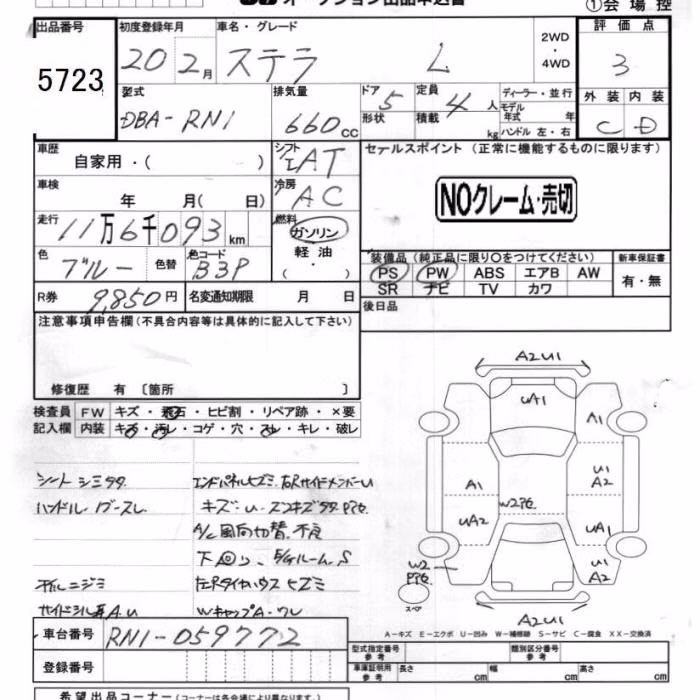 オークション出品申込書
①会場控
出品番号
5723
初度登録年月
20 2月
車名・グレード
ステラ L
2WD・4WD
評価点
3
型式
DBA-RN1
排気量
660cc
ドア 5
形状
定員 4人
積載 kg
ディーラー・並行
モデル年式 年
ハンドル 左・右
外装 内装
C D
車歴
自家用・( )
シフト
AT
車検
年 月( 日)
冷房
AC
走行
11万6千093km
燃料
ガソリン
軽油
( ・ )
色
ブルー
色替
色コード
B3P
R券 9,850円
名変通知期限 月 日
セールスポイント (正常に機能するものに限ります)
NOクレーム・売切
装備品 (純正品に限り○をつけてください)
PS PW ABS エアB AW
SR ナビ TV カワ
新車保証書
有・無
後日品
注意事項申告欄(不具合内容等は具体的に記入して下さい)
修復歴 有 〔箇所 〕
検査員記入欄
FW キズ・飛石・ヒビ割・リペア跡・×要
内装 キズ・汚レ・コゲ・穴・スレ・キレ・破レ
シート シミ
ハンドル
エンドパネルヒズミ 右RサイドメンバーU
キズ:U
A/C 風向切替 不良
下回り、E/Gルーム S
左Rタイヤハウスヒズミ
WキャップA・ワレ
A2U1
UA1
A1
U1
A2
A1
UA2
W2
UA1
W2
U1
A2
スペア
A2U1
A-キズ E-エクボ U-凹み W-補修跡 S-サビ C-腐食 XX-交換済
車台番号 RN1-059772
登録番号
型式指定番号 参考
類別区分番号 参考
車庫証明用 参考
長さ cm 幅 cm 高さ cm
希望出品コーナー (コーナーは各会場により異なります。)